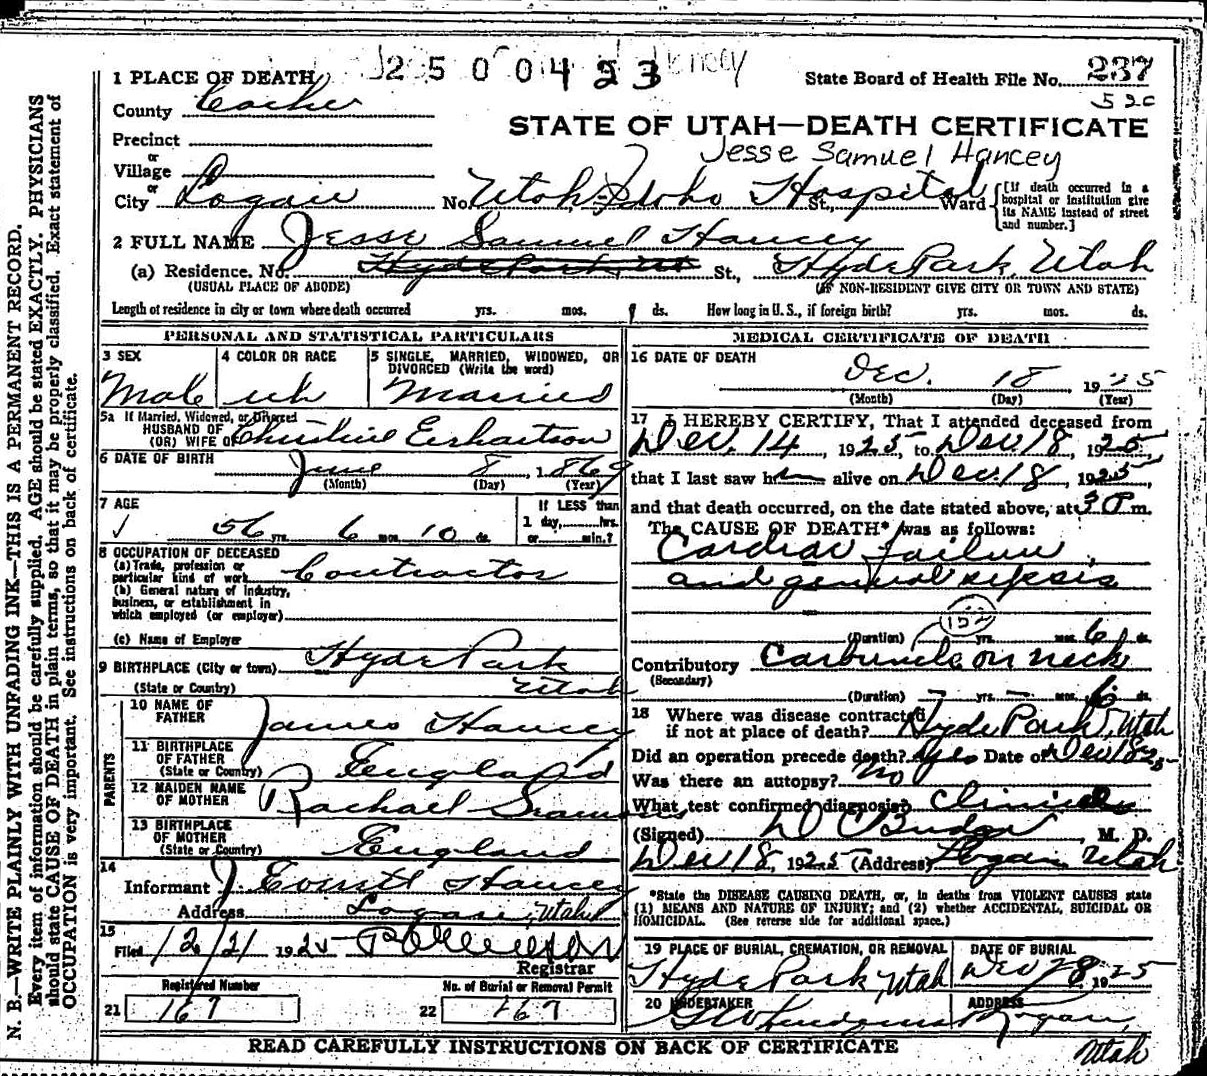 2500423
1 PLACE OF DEATH
State Board of Health File No. 237
County Cache
520
STATE OF UTAH—DEATH CERTIFICATE
Precinct
Jesse Samuel Hancey
or
Village
or
City Logan No. Utah-Idaho Hospital St., Ward
[If death occurred in a hospital or institution give its NAME instead of street and number.]
2 FULL NAME Jesse Samuel Hancey
(a) Residence. No. Hyde Park, Ut St., Hyde Park, Utah
(USUAL PLACE OF ABODE) (IF NON-RESIDENT GIVE CITY OR TOWN AND STATE)
Length of residence in city or town where death occurred yrs. mos. ds. How long in U. S., if foreign birth? yrs. mos. ds.
PERSONAL AND STATISTICAL PARTICULARS
3 SEX
Male
4 COLOR OR RACE
wh
5 SINGLE, MARRIED, WIDOWED, OR DIVORCED (Write the word)
Married
5a If Married, Widowed, or Divorced
HUSBAND OF
(OR) WIFE OF Christine
6 DATE OF BIRTH June 8 1869
(Month) (Day) (Year)
7 AGE
56 yrs. 6 mos. 10 ds.
If LESS than
1 day, hrs.
or min.?
8 OCCUPATION OF DECEASED
(a) Trade, profession or
particular kind of work Contractor
(b) General nature of industry,
business, or establishment in
which employed (or employer)
(c) Name of Employer
9 BIRTHPLACE (City or town) Hyde Park
(State or Country) Utah
PARENTS
10 NAME OF FATHER James Hancey
11 BIRTHPLACE OF FATHER
(State or Country) England
12 MAIDEN NAME OF MOTHER Rachael
13 BIRTHPLACE OF MOTHER
(State or Country) England
14
Informant J Everett Hancey
Address Logan, Utah
15
Filed 12/21 1925
Registrar
Registered Number
21 167
No. of Burial or Removal Permit
22 167
MEDICAL CERTIFICATE OF DEATH
16 DATE OF DEATH
Dec. 18 1925
(Month) (Day) (Year)
17 I HEREBY CERTIFY, That I attended deceased from
Dec. 14, 1925, to Dec. 18, 1925,
that I last saw him alive on Dec. 18, 1925,
and that death occurred, on the date stated above, at 3 P m.
The CAUSE OF DEATH* was as follows:
Cardiac failure
and general sepsis
152
(Duration) yrs. mos. 6 ds.
Contributory Carbuncle on neck
(Secondary)
(Duration) – yrs. – mos. 6 ds.
18 Where was disease contracted
if not at place of death? Hyde Park, Utah
Did an operation precede death? yes Date of Dec 18 25
Was there an autopsy? no
What test confirmed diagnosis? Clinical
(Signed) D C Budge M. D.
Dec 18, 1925 (Address) Logan Utah
*State the DISEASE CAUSING DEATH, or, in deaths from VIOLENT CAUSES state
(1) MEANS AND NATURE OF INJURY; and (2) whether ACCIDENTAL, SUICIDAL OR
HOMICIDAL. (See reverse side for additional space.)
19 PLACE OF BURIAL, CREMATION, OR REMOVAL
Hyde Park, Utah
DATE OF BURIAL
Dec 28, 1925
20 UNDERTAKER
ADDRESS
Logan,
Utah
READ CAREFULLY INSTRUCTIONS ON BACK OF CERTIFICATE
N. B.—WRITE PLAINLY WITH UNFADING INK—THIS IS A PERMANENT RECORD.
Every item of information should be carefully supplied. AGE should be stated EXACTLY. PHYSICIANS
should state CAUSE OF DEATH in plain terms, so that it may be properly classified. Exact statement of
OCCUPATION is very important. See instructions on back of certificate.